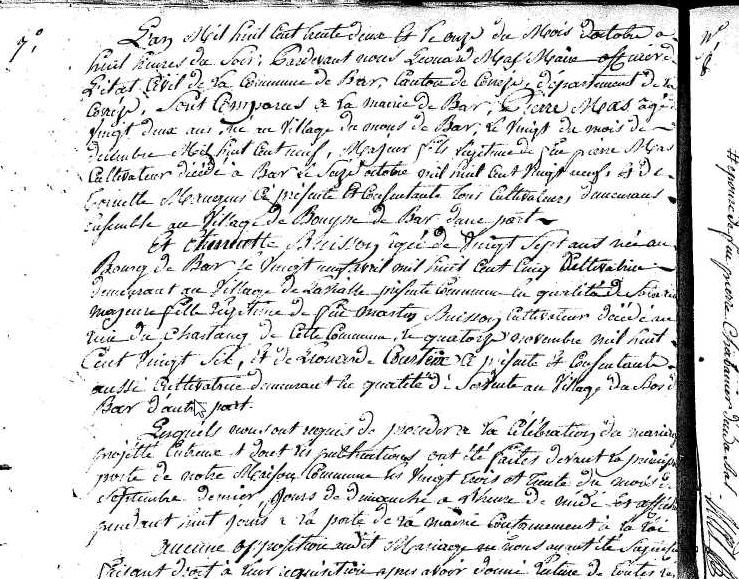 7°.
L'an Mil huit Cent trente deux Et le onze du Mois d'octobre a
huit heures du Soir, Pardevant nous Leonard Mas Maire officier de
L'état Civil de la Commune de Bar, Canton de Corrèze, département de la
Corrèze, Sont Comparus a la mairie de Bar, Pierre Mas agé de
Vingt deux ans, né au Village du mons de Bar, le Vingt du mois de
décembre Mil huit Cent neuf, Majeur fils Legitime de feu pierre Mas
Cultivateur décédé à Bar le Seize octobre mil huit Cent Vingt neuf, & de
Mauguens Ci présente & Consentante tous Cultivateurs demeurans
Ensemble au Village de Bouysse de Bar d'une part
Et Buisson agée de Vingt Sept ans née au
Bourg de Bar le Vingt neuf avril mil huit Cent Cinq Cultivatrice
demeurant au Village de Lasalle présente Commune En qualité de Servante
majeure fille Legitime de feu martin Buisson Cultivateur décédé au
du Chastang de Cette Commune, le quatorze novembre mil huit
Cent Vingt Six, Et de Leonarde Ci présente & Consentante
aussi Cultivatrice demeurant En qualité de Servante au Village du
Bar d'autre part.
Lesquels nous ont requis de procéder a La Célébration du mariage
projetté Entreux & dont les publications ont été faites devant la principale
porte de notre Maison Commune les Vingt trois et trente du mois de
Septembre dernier, Jours de dimanche a l'heure de midi Et affiché
pendant huit Jours a la porte de la mairie Conformement à la Loi
aucune opposition audit Mariage ne nous ayant été Signifiée
faisant droit à leur réquisition après avoir donné lecture de toutes les
N°
8